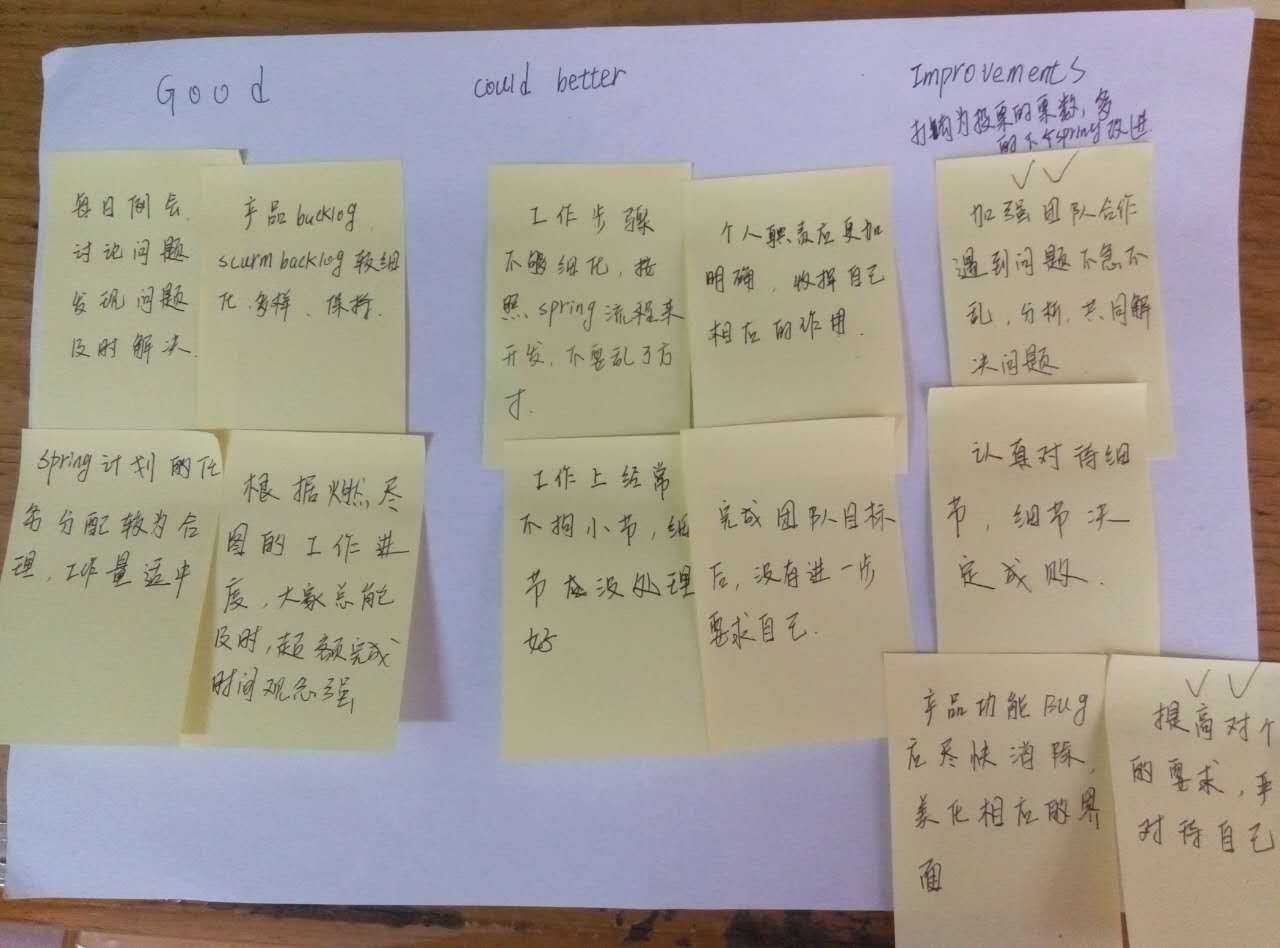 Good
每日例会
讨论问题
发现问题
及时解决.
产品backlog,
scurm backlog较细
化.多样、保持.
spring计划的任
务分配较为合
理,工作量适中
根据燃尽
图的工作进
度,大家总能
及时,超额完成
时间观念强
could better
工作步骤
不够细化,按
照spring流程来
开发,不要乱了方
寸.
个人职责应更加
明确,发挥自己
相应的作用.
工作上经常
不拘小节,细
节没处理
好
完成团队目标
后,没有进一步
要求自己.
Improvements
打钩为投票的票数,多
的下个spring改进
加强团队合作
遇到问题不急不
乱,分析,共同解
决问题
认真对待细
节,细节决
定成败.
产品功能Bug
应尽快消除,
美化相应的界
面
提高对个
的要求,
对待自己